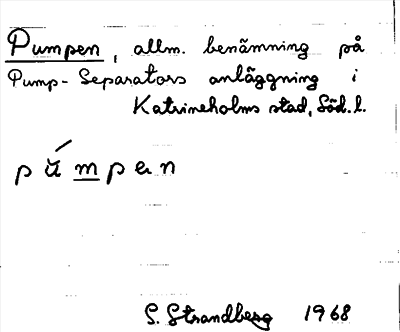 Pumpen, allm. benämning på
Pump-Separators anläggning i
Katrineholms stad, Söd. l.
pu̇́mpen
S. Strandberg 1968